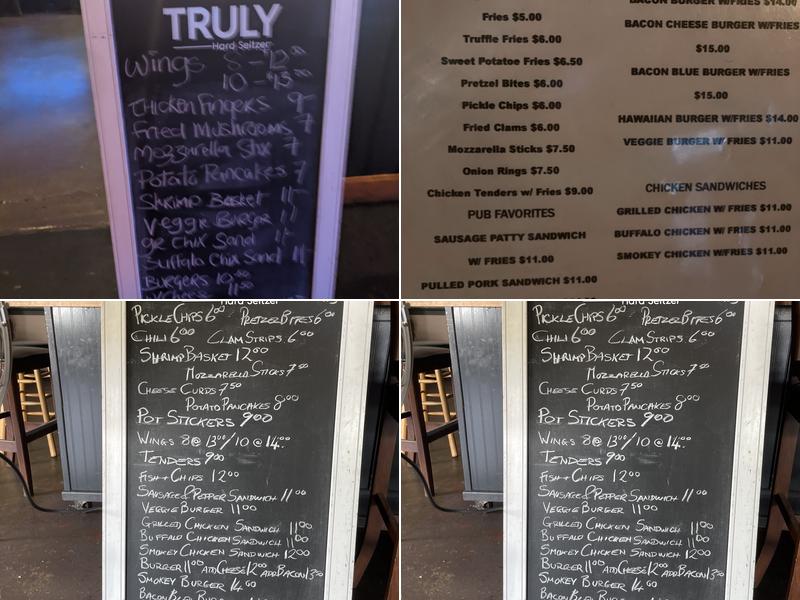 TRULY
Hard Seltzer
Wings 8 - 12.00
10 - $15.00
Chicken Fingers 9-
Fried Mushrooms 7
Mozzarella Stix 7
Potato Pancakes 7
Shrimp Basket 11-
Veggie Burger 11
Chix Sand 11-
Buffalo Chix Sand 11-
Burgers 10.00
BACON BURGER W/FRIES $14.00
Fries $5.00
BACON CHEESE BURGER W/FRIES
Truffle Fries $6.00
$15.00
Sweet Potatoe Fries $6.50
BACON BLUE BURGER W/FRIES
Pretzel Bites $6.00
$15.00
Pickle Chips $6.00
HAWAIIAN BURGER W/FRIES $14.00
Fried Clams $6.00
VEGGIE BURGER W/FRIES $11.00
Mozzarella Sticks $7.50
Onion Rings $7.50
CHICKEN SANDWICHES
Chicken Tenders w/ Fries $9.00
GRILLED CHICKEN W/ FRIES $11.00
PUB FAVORITES
BUFFALO CHICKEN W/ FRIES $11.00
SAUSAGE PATTY SANDWICH
SMOKEY CHICKEN W/ FRIES $11.00
W/ FRIES $11.00
PULLED PORK SANDWICH $11.00
Hard Seltzer
PICKLE CHIPS 6.00 PRETZEL BITES 6.00
CHILI 6.00 CLAM STRIPS 6.00
SHRIMP BASKET 12.00
MOZZARELLA STICKS 7.50
CHEESE CURDS 7.50
POTATO PANCAKES 8.00
POT STICKERS 9.00
WINGS 8@ 13.00/10@14.00
TENDERS 9.00
FISH + CHIPS 12.00
SAUSAGE & PEPPER SANDWICH 11.00
VEGGIE BURGER 11.00
GRILLED CHICKEN SANDWICH 11.00
BUFFALO CHICKEN SANDWICH 11.00
SMOKEY CHICKEN SANDWICH 12.00
BURGER 11.00 ADD CHEESE 12.00 ADD BACON 13.50
SMOKEY BURGER 14.00
Hard Seltzer
PICKLE CHIPS 6.00 PRETZEL BITES 6.00
CHILI 6.00 CLAM STRIPS 6.00
SHRIMP BASKET 12.00
MOZZARELLA STICKS 7.50
CHEESE CURDS 7.50
POTATO PANCAKES 8.00
POT STICKERS 9.00
WINGS 8@ 13.00/10@14.00
TENDERS 9.00
FISH + CHIPS 12.00
SAUSAGE & PEPPER SANDWICH 11.00
VEGGIE BURGER 11.00
GRILLED CHICKEN SANDWICH 11.00
BUFFALO CHICKEN SANDWICH 11.00
SMOKEY CHICKEN SANDWICH 12.00
BURGER 11.00 ADD CHEESE 12.00 ADD BACON 13.50
SMOKEY BURGER 14.00